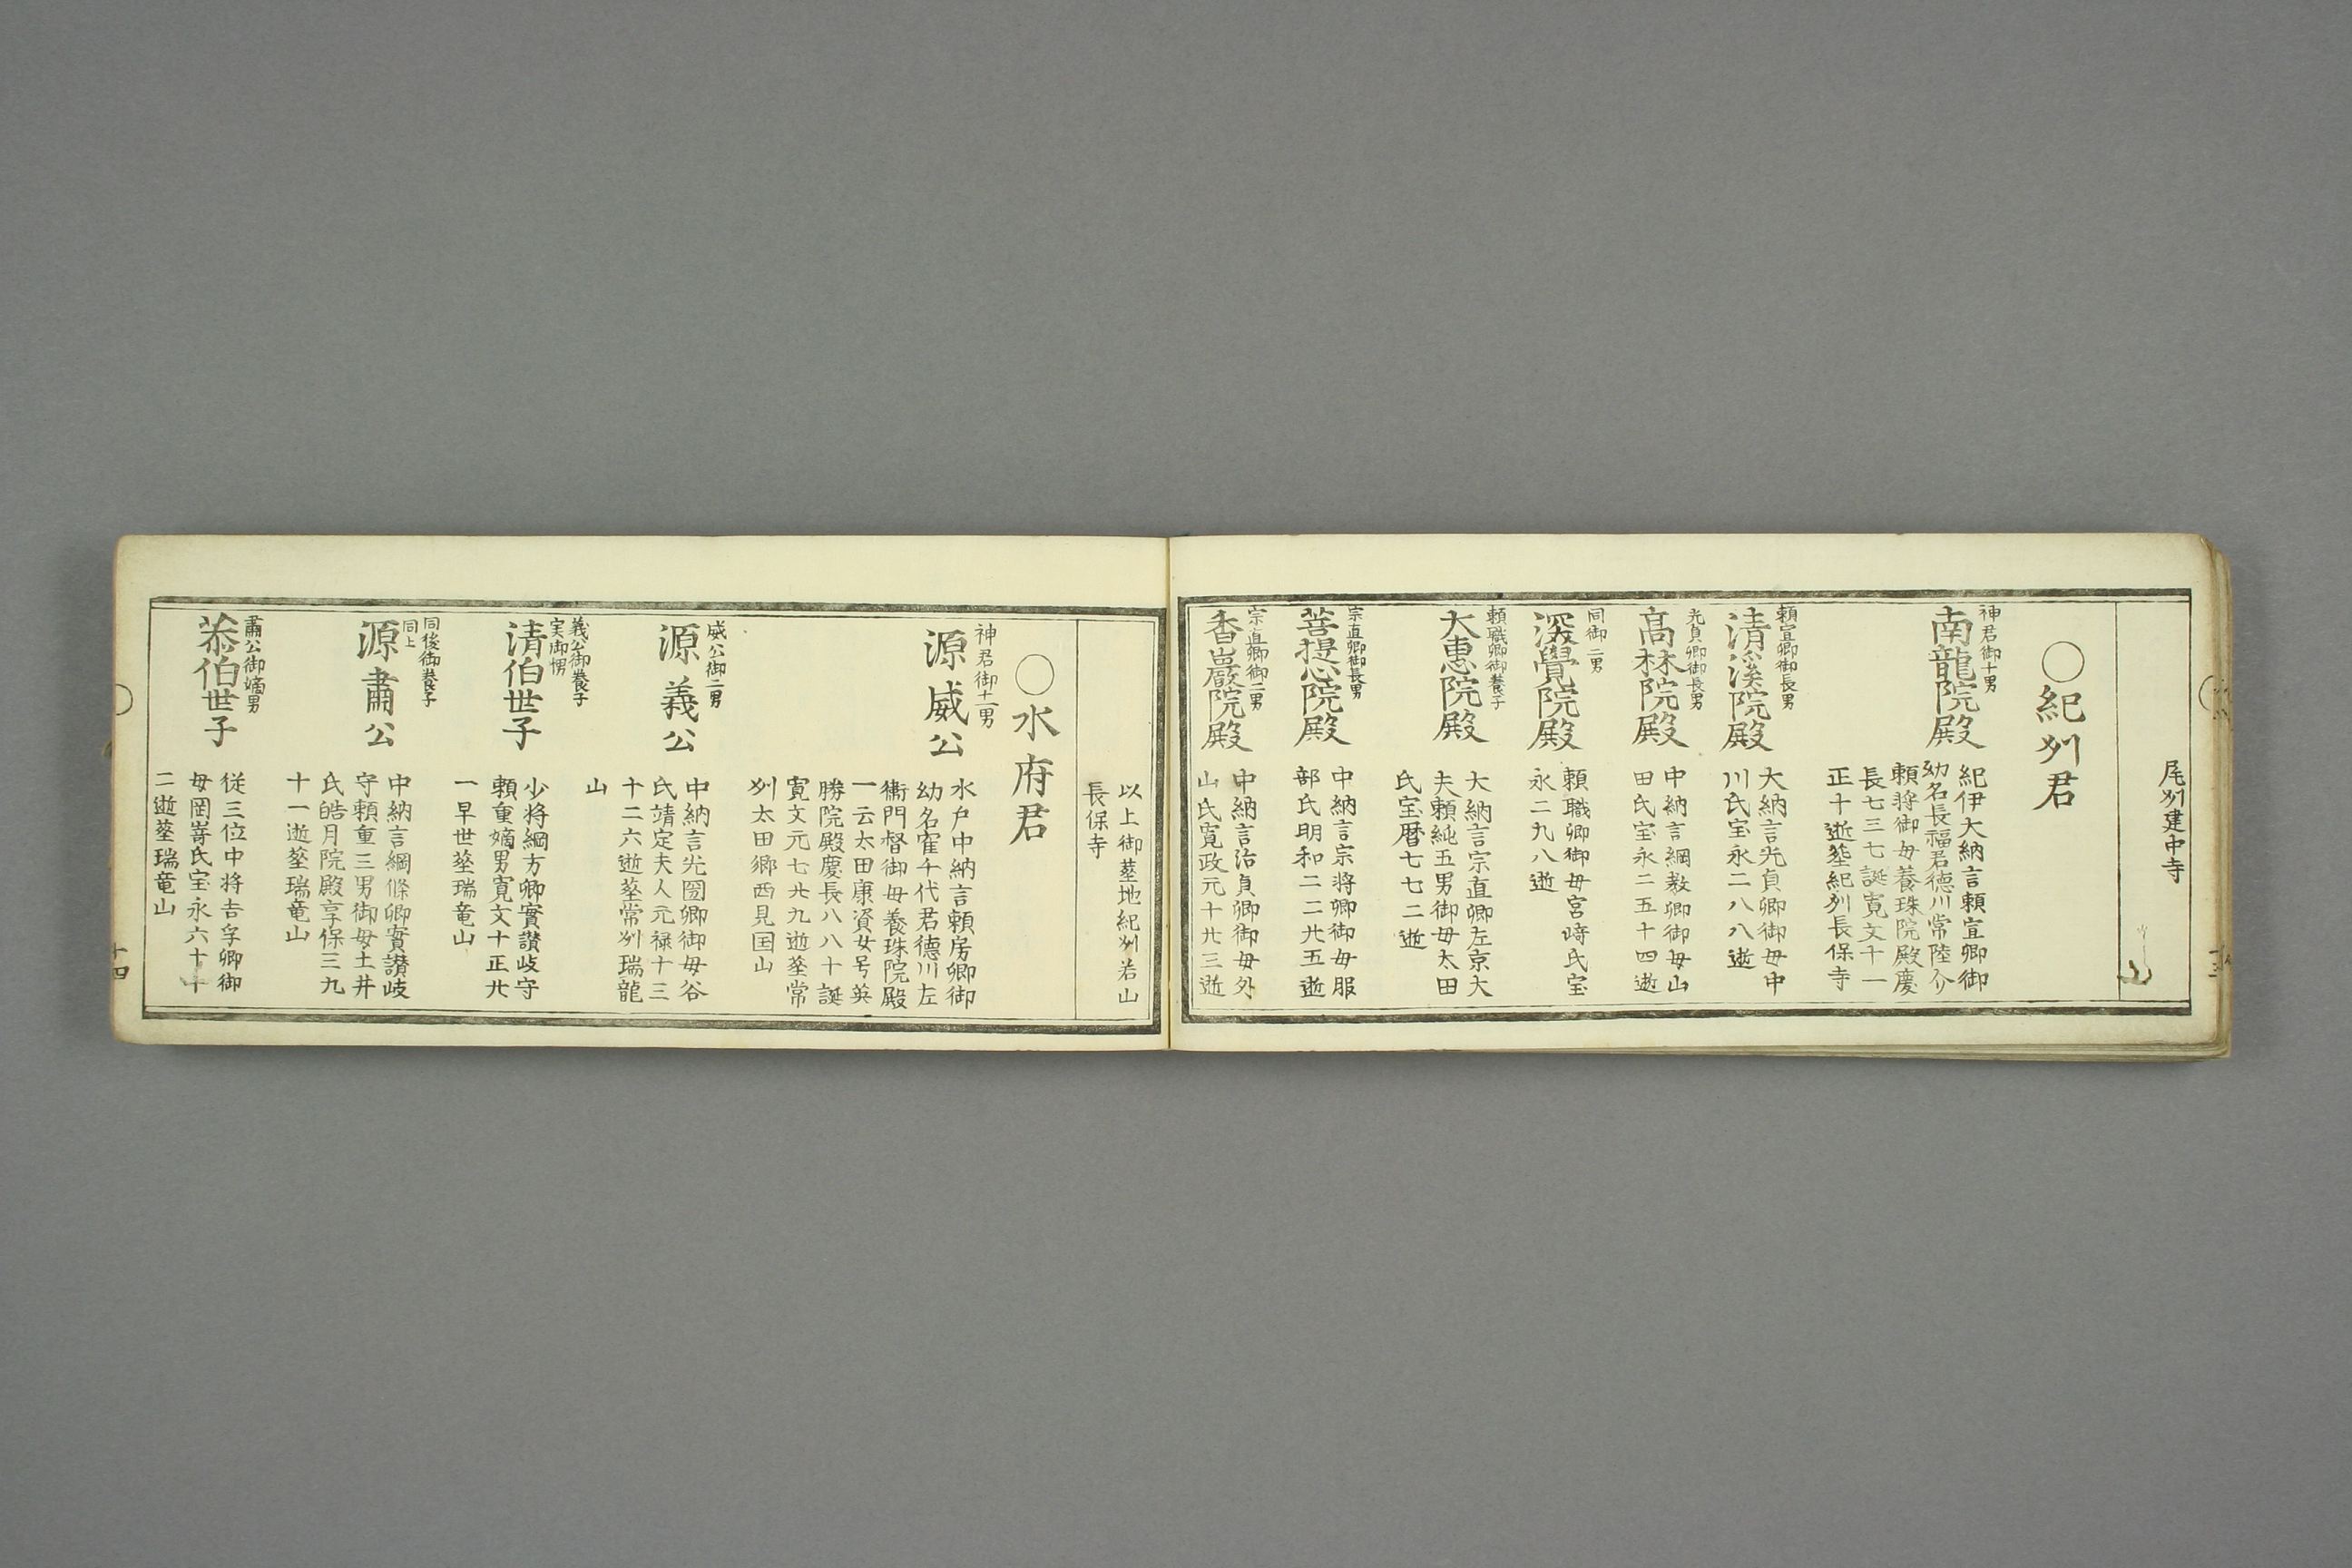 尾刕建中寺
〇紀刕君
神君御十男
南龍院殿
紀伊大納言頼宣卿御
幼名長福君徳川常陸介
頼将御母養珠院殿慶
長七三七誕寛文十一
正十逝葬紀刕長保寺
頼宣卿御長男
清溪院殿
大納言光貞卿御母中
川氏宝永二八八逝
光貞卿御長男
高林院殿
中納言綱教卿御母山
田氏宝永二五十四逝
同御二男
深覺院殿
頼職卿御母宮﨑氏宝
永二九八逝
頼職卿御養子
大恵院殿
大納言宗直卿左京大
夫頼純五男御母太田
氏宝暦七七二逝
宗直卿御長男
菩提心院殿
中納言宗将卿御母服
部氏明和二二廿五逝
宗直卿御二男
香嚴院殿
中納言治貞卿御母外
山氏寛政元十廿三逝
以上御葬地紀刕若山
長保寺
〇水府君
神君御十一男
源威公
水戸中納言頼房卿御
幼名寉千代君徳川左
衛門督御母養珠院殿
一云太田康資女号英
勝院殿慶長八八十誕
寛文元七廿九逝葬常
刕太田郷西見国山
威公御二男
源義公
中納言光圀卿御母谷
氏靖定夫人元禄十三
十二六逝葬常刕瑞龍
山
義公御養子
実御甥
清伯世子
少将綱方卿實讃岐守
頼重嫡男寛文十正廿
一早世葬瑞竜山
同後御養子
同上
源肅公
中納言綱條卿實讃岐
守頼重三男御母土井
氏皓月院殿享保三九
十一逝葬瑞竜山
肅公御嫡男
恭伯世子
従三位中将吉孚卿御
母岡嵜氏宝永六十十
二逝葬瑞竜山
十四